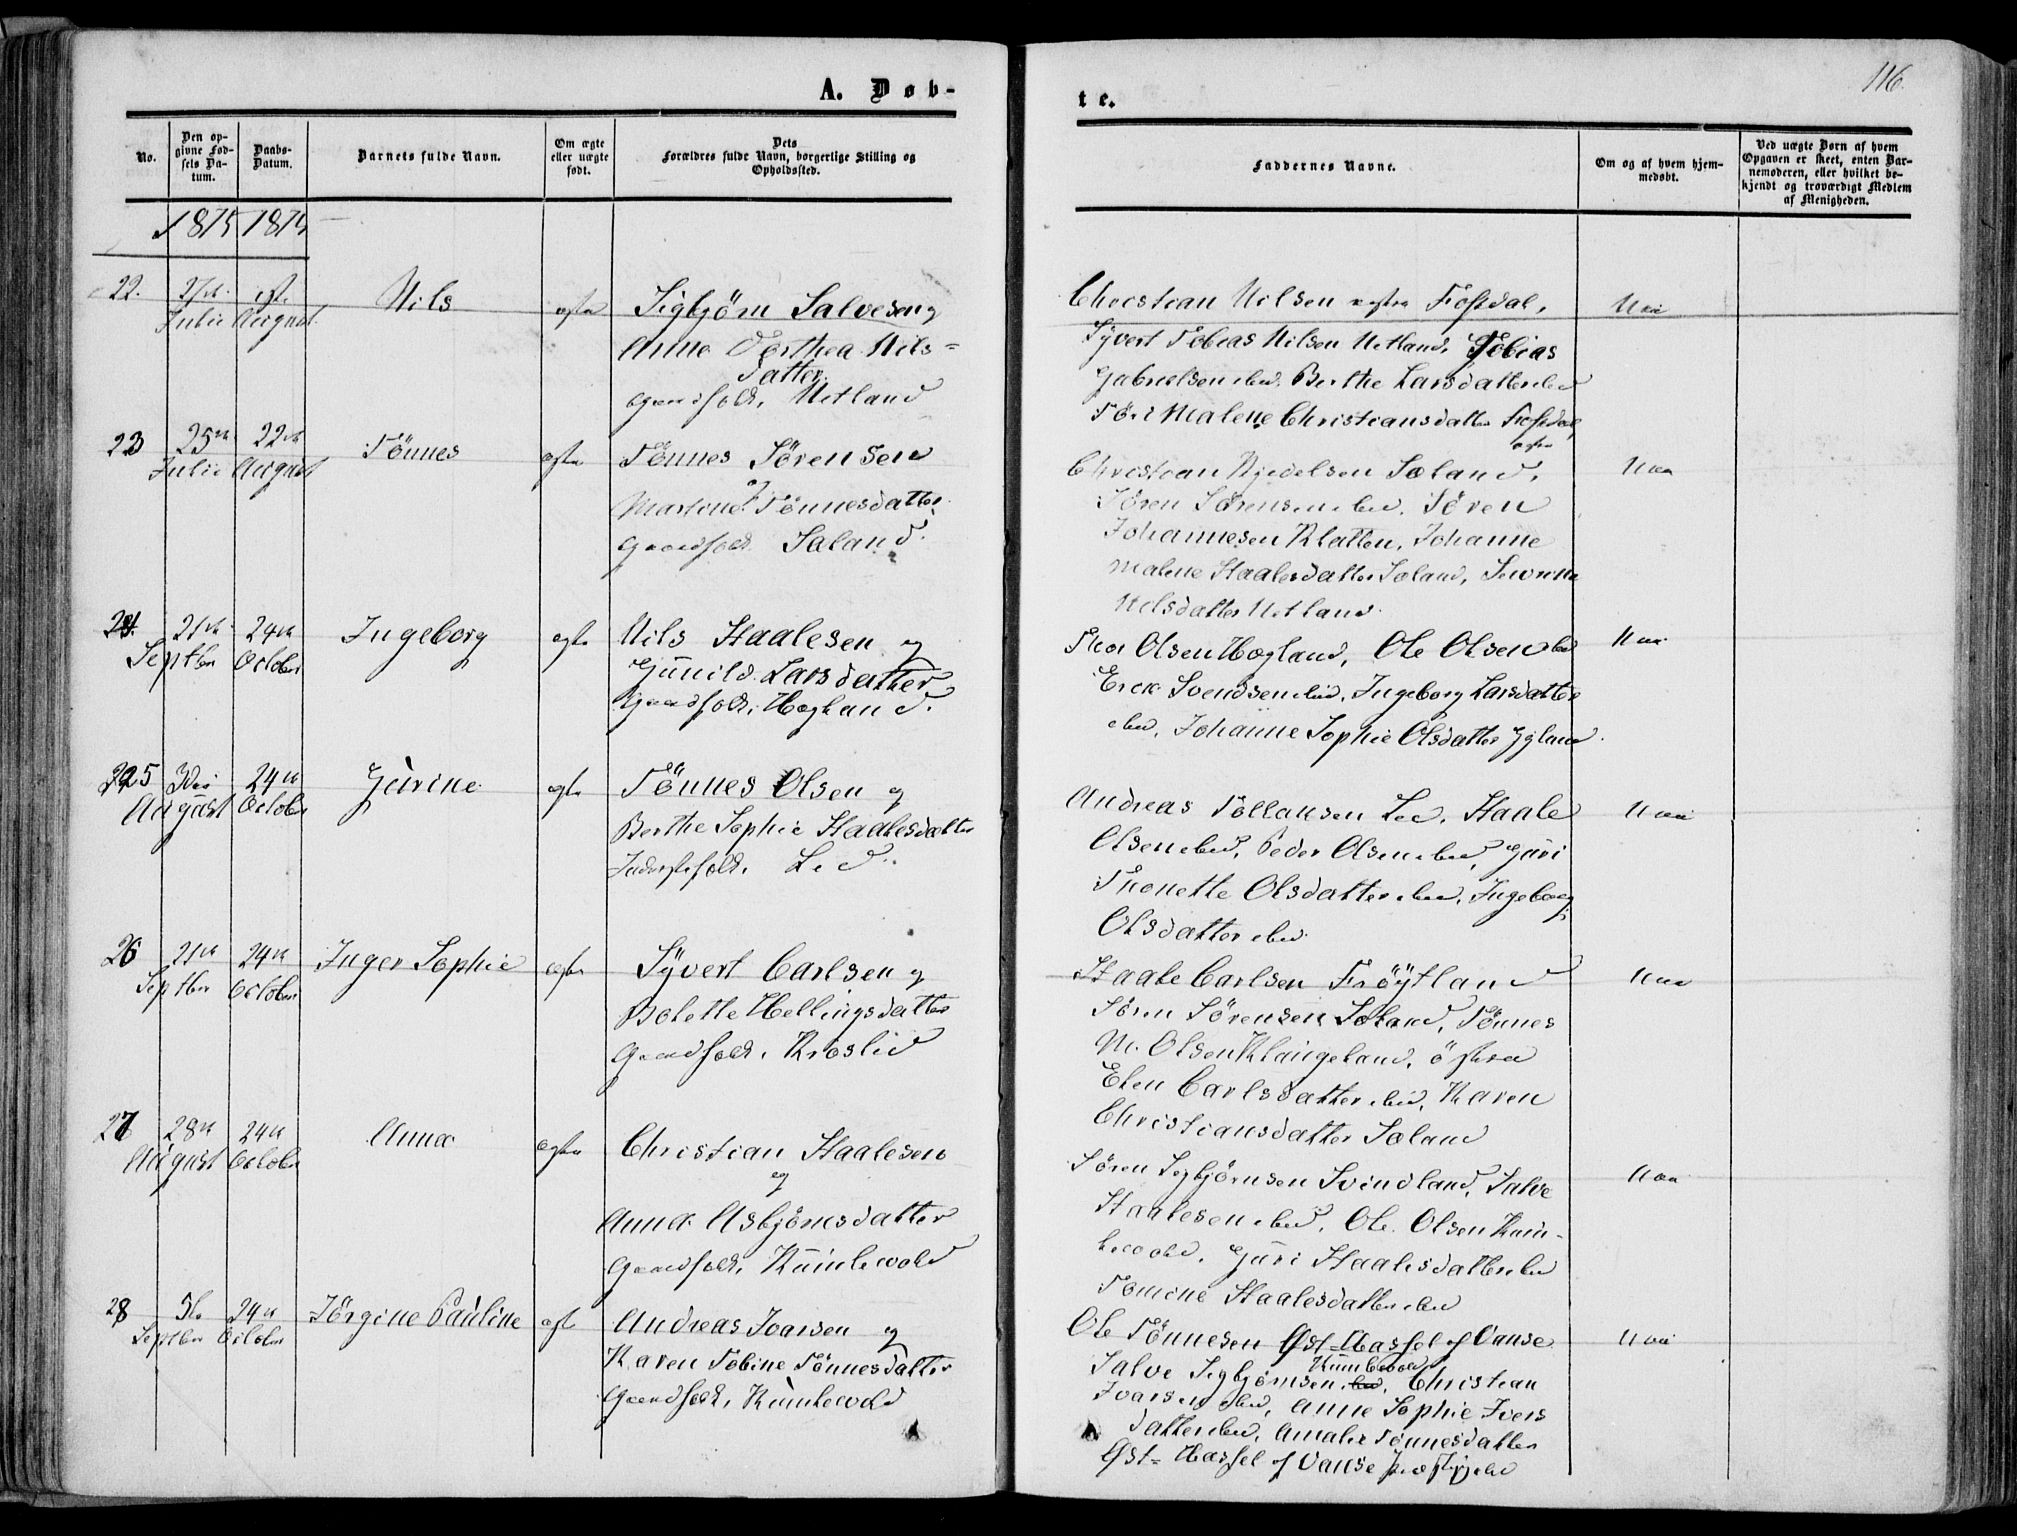 A. Døb-
te.
116.
No.
Den op-
givne Fød-
sels Da-
tum.
Daabs-
Datum.
Barnets fulde Navn.
Om ægte
eller uægte
født.
Dets
Forældres fulde Navn, borgerlige Stilling og
Opholdssted.
Faddernes Navne.
Om og af hvem hjem-
medøbt.
Ved uægte Børn af hvem
Opgaven er skeet, enten Bar-
nemoderen, eller hvilket be-
kjendt og troværdigt Medlem
af Menigheden.
1875 1875
22.
27de
Julii
1ste
August
Nils
ægte
Sigbjörn Salvesen og
Anne Dorthea Nils=
datter
Gaardfolk, Netland
Christian Nilsen vestre Fossdal,
Syvert Tobias Nilsen Netland, Tobias
Gabrielsen ibid. Berthe Larsdatter ibid
Töri Malene Christiansdatter Fossdal
vestre
Nei
23
25de
Julii
22de
August
Tönnes
ægte
Tönnes Sörensen
og
Martine Tönnesdatter
Gaardfolk Sæland.
Christian Sæland,
Sören Sörensen ibid. Sören
Johannesen Klatten, Johanne
Malene Staalesdatter Sæland,
Nilsdatter Netland.
Nei
24.
21de
Septbr
24de
October
Ingeborg
ægte
Nils Staalesen og
Gunild Larsdatter
Gaardfolk, Høgland.
Thor Olsen Høgland, Ole Olsen ibid
Erik Svendsen ibid, Ingeborg Larsdatter
ibid, Johanne Sophie Olsdatter Igland.
Nei
25
3die
August
24de
October
Gurine
ægte
Tönnes Olsen og
Berthe Sophie Staalesdatter
Inderstfolk, Lie.
Andreas Tollaksen Lie, Staale
Olsen ibid, Peder Olsen ibid, Guri
Thonette Olsdatter ibid, Ingeborg
Olsdatter ibid.
Nei
26
21de
Septbr
24de
October
Inger Sophie
ægte
Syvert Carlsen og
Bolette Hellingsdatter
Gaardfolk, Kroslid
Staale Carlsen Fröÿtland
Sören Sörensen Sæland, Tönnes
M. Olsen Klungeland, östre
Elen Carlsdatter ibid, Karen
Christiansdatter Sæland
Nei
27
28de
August
24de
October
Anna
ægte
Christian Staalesen
og
Anna Asbjörnsdatter
Gaardfolk, Kumlevold
Sören Sigbjörnsen Svindland, Salve
Staalesen ibid, Ole Olsen Kum-
levold, Guri Staalesdatter ibid
Tomine Staalesdatter ibid
Nei
28
5te
Septbr
24de
October
Jörgine Pauline
ægte
Andreas Ivarsen og
Karen Tobine Tönnesdatter
Gaardfolk, Kumlevold
Ole Tönnesen Øst-Hassel af Vanse
Kumlevold
Salve Sigbjörnsen ibid, Christian
Ivarsen ibid, Anne Sophie Ivers
datter ibid, Amalie Tönnesdatter
Øst-Hassel af Vanse Præstegjeld
Nei